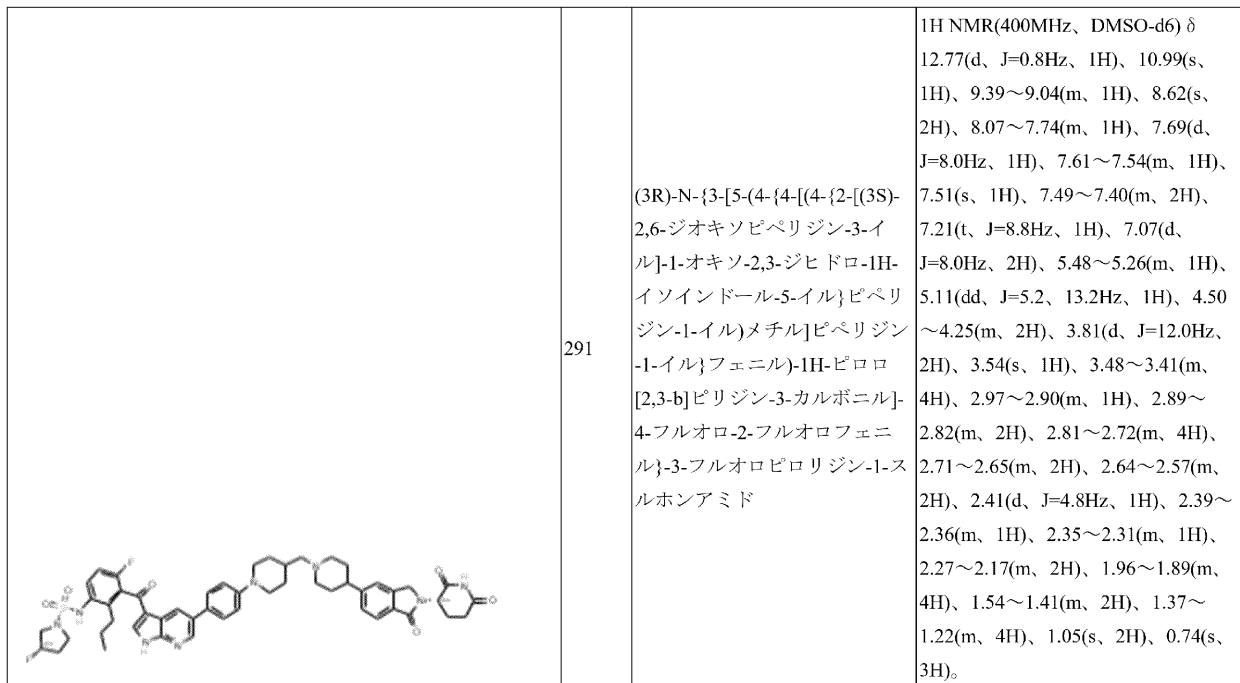 291
(3R)-N-{3-[5-(4-{4-[(4-{2-[(3S)-
2,6-ジオキソピペリジン-3-イ
ル]-1-オキソ-2,3-ジヒドロ-1H-
イソインドール-5-イル}ピペリ
ジン-1-イル)メチル]ピペリジン
-1-イル}フェニル)-1H-ピロロ
[2,3-b]ピリジン-3-カルボニル]-
4-フルオロ-2-フルオロフェニ
ル}-3-フルオロピロリジン-1-ス
ルホンアミド
1H NMR(400MHz、DMSO-d6) δ
12.77(d、J=0.8Hz、1H)、10.99(s、
1H)、9.39～9.04(m、1H)、8.62(s、
2H)、8.07～7.74(m、1H)、7.69(d、
J=8.0Hz、1H)、7.61～7.54(m、1H)、
7.51(s、1H)、7.49～7.40(m、2H)、
7.21(t、J=8.8Hz、1H)、7.07(d、
J=8.0Hz、2H)、5.48～5.26(m、1H)、
5.11(dd、J=5.2、13.2Hz、1H)、4.50
～4.25(m、2H)、3.81(d、J=12.0Hz、
2H)、3.54(s、1H)、3.48～3.41(m、
4H)、2.97～2.90(m、1H)、2.89～
2.82(m、2H)、2.81～2.72(m、4H)、
2.71～2.65(m、2H)、2.64～2.57(m、
2H)、2.41(d、J=4.8Hz、1H)、2.39～
2.36(m、1H)、2.35～2.31(m、1H)、
2.27～2.17(m、2H)、1.96～1.89(m、
4H)、1.54～1.41(m、2H)、1.37～
1.22(m、4H)、1.05(s、2H)、0.74(s、
3H)。